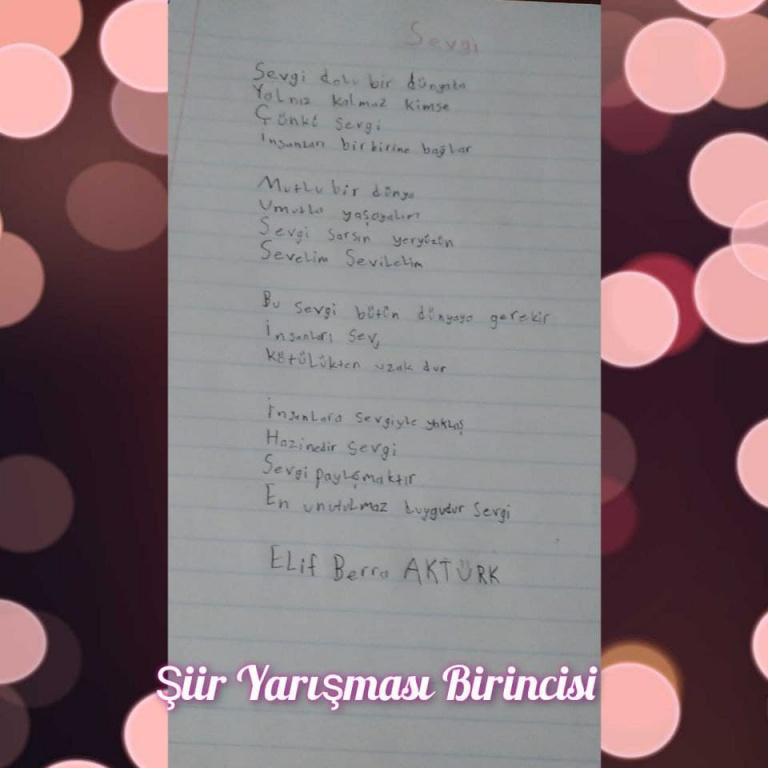 Sevgi
Sevgi dolu bir dünyada
Yalnız kalmaz kimse
Çünkü sevgi
insanları birbirine bağlar
Mutlu bir dünya
Umutla yaşayalım
Sevgi sarsın yeryüzün
Sevelim Sevilelim
Bu sevgi bütün dünyaya gerekir
İnsanları sev,
Kötülükten uzak dur
İnsanlara sevgiyle yaklaş
Hazinedir sevgi
Sevgi paylaşmaktır
En unutulmaz duygudur sevgi
Elif Berra AKTÜRK
Şiir Yarışması Birincisi